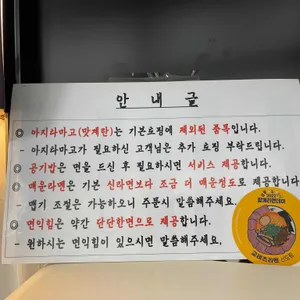 안 내 글
◎ 아지타마고(맛계란)는 기본토핑에 제외된 품목입니다.
- 아지타마고가 필요하신 고객님은 추가 토핑 부탁드립니다.
◎ 공기밥은 면을 드신 후 필요하시면 서비스 제공합니다.
◎ 매운라멘은 기본 신라면보다 조금 더 매운정도로 제공합니다
- 맵기 조절은 가능하오니 주문시 말씀해주세요.
◎ 면익힘은 약간 단단한면으로 제공합니다.
- 원하시는 면익힘이 있으시면 말씀해주세요.